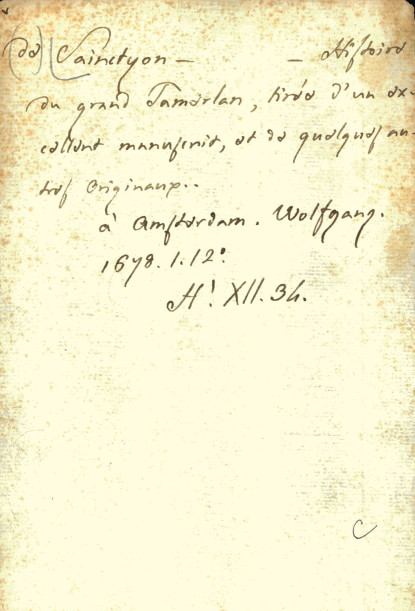 (de) Sainctyon — — Histoire
du grand Tamerlan, tirée d'un ex-
cellent manuscrit, et de quelques au-
tres Originaux..
à Amsterdam. Wolfgang.
1678. 1. 12°.
H! XII. 34.
C